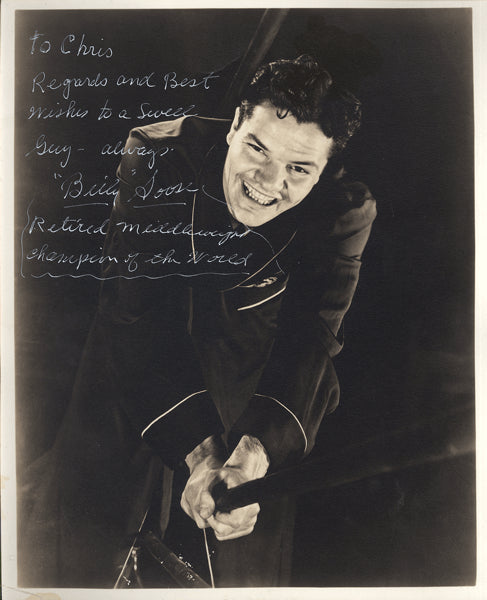 To Chris
Regards and Best
Wishes to a Swell
Guy - always.
"Billy" Soose
Retired Middleweight
Champion of the World